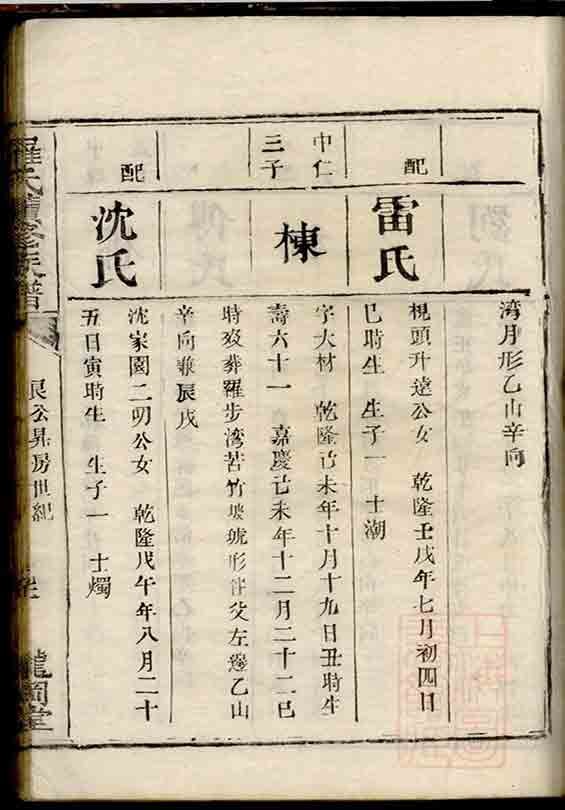 湾月形乙山辛向
配
雷氏
梘頭升遠公女 乾隆壬戌年七月初四日
巳時生 生子一 士潮
中仁
三子
棟
字大材 乾隆己未年十月十九日丑時生
壽六十一 嘉慶己未年十二月二十二巳
時歿葬羅步湾苦竹坡琥形父左邊乙山
辛向兼辰戌
配
沈氏
沈家園二明公女 乾隆戊午年八月二十
五日寅時生 生子一 士燭
羅氏續修族譜
艮公昇房世紀
龍岡堂